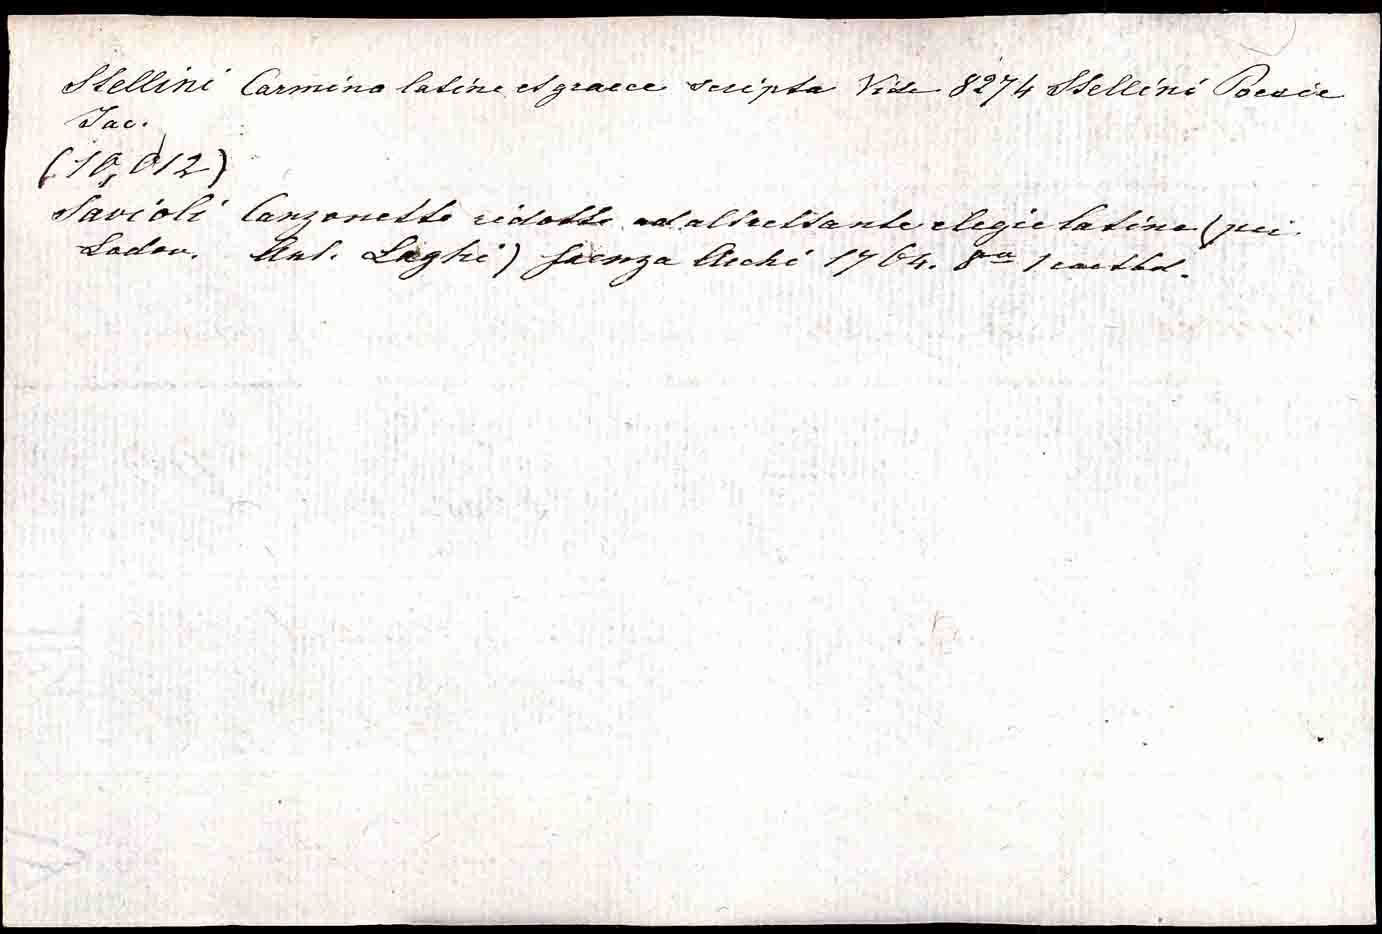 Stellini Carmina latine et graece scripta Vide 8274 Stellini Poesie
Jac.
(10,012)
Savioli Canzonette ridotte ad altrettante elegie latine (per
Lodov. Ant. Laghi) Faenza Archi 1764. 8vo 1 cart bd.